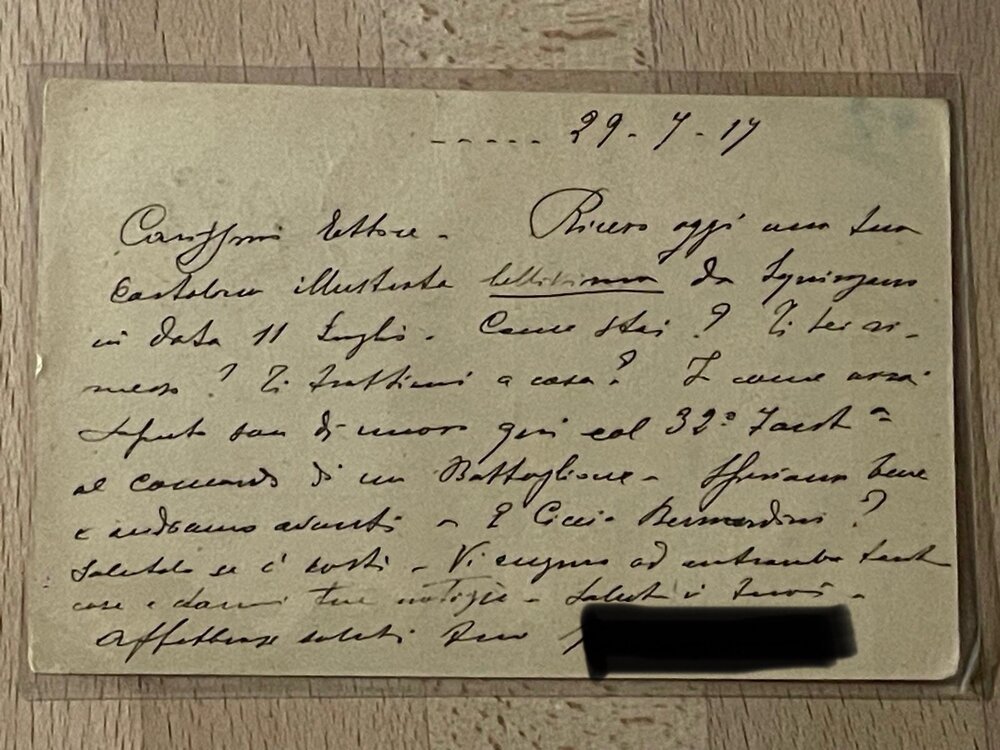 ----- 29-7-17
Carissimo Ettore - Ricevo oggi una tua
cartolina illustrata bellissima da Squinzano
in data 11 Luglio. Come stai? Ti sei ri-
messo? Ti trattieni a casa? I come avrai
saputo son di nuovo qui col 32º Fant.ª
al comando di un Battaglione - Speriamo bene
e andiamo avanti - E Ciccio Bernardini?
Salutalo se è costì - Vi auguro ad entrambi tante
cose e dammi tue notizie - Saluti i tuoi -
Affettuosi saluti tuo